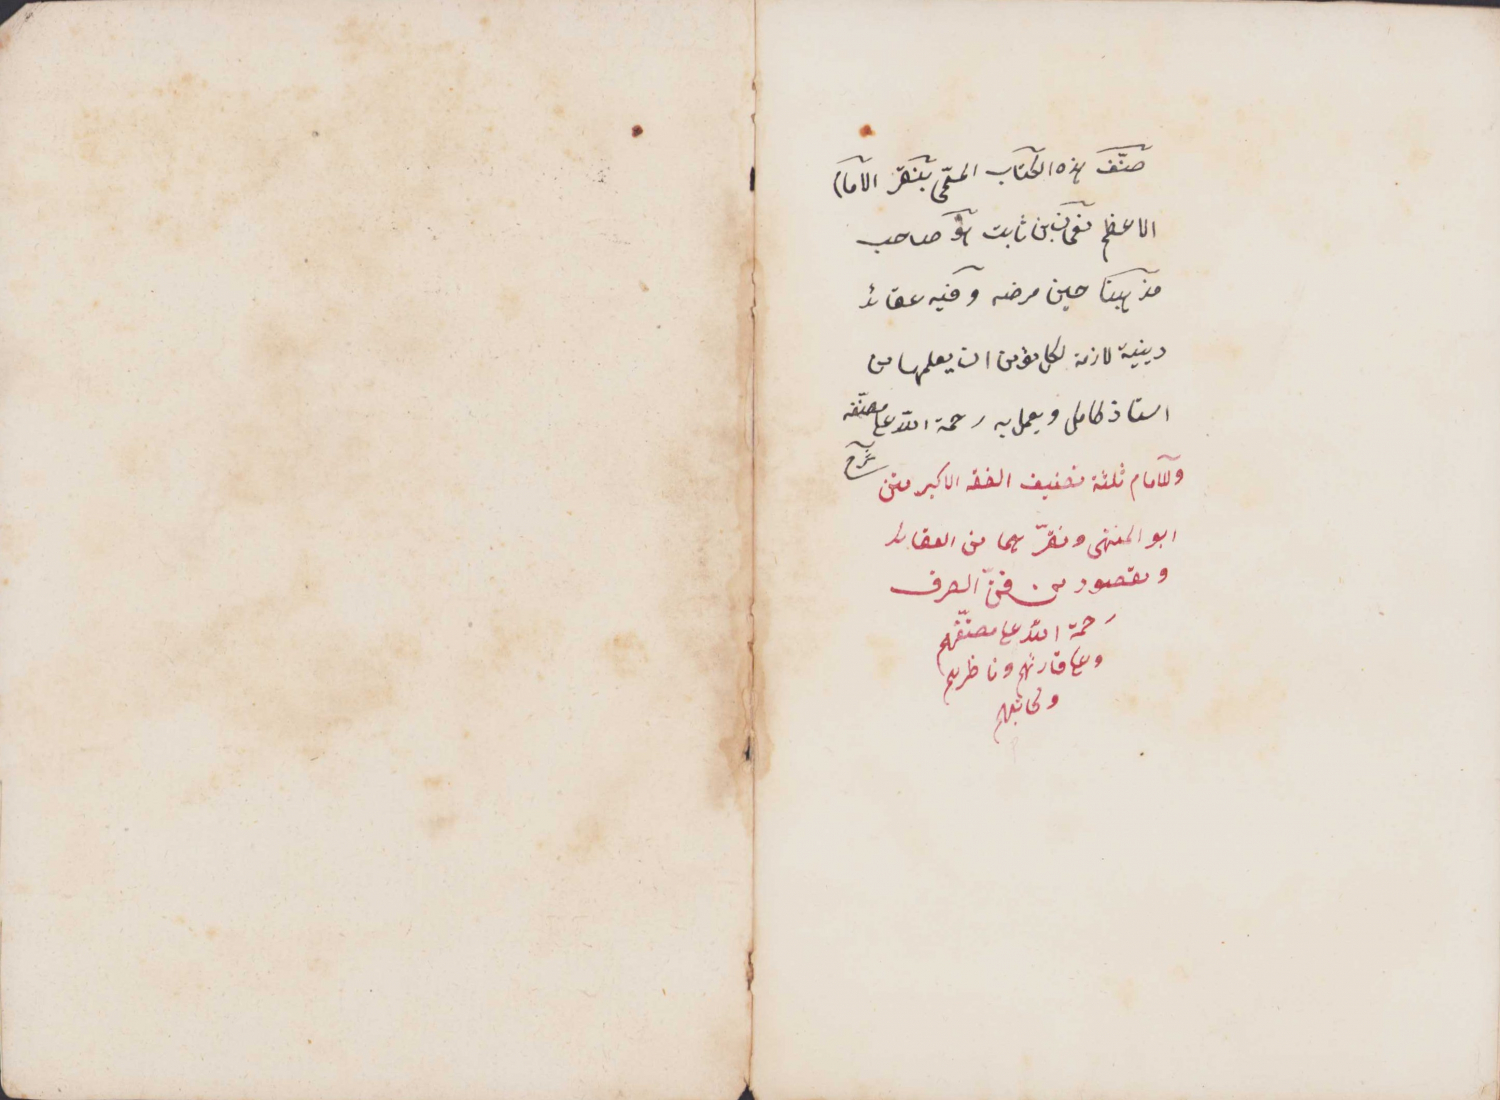 صنّف هذه الكتاب المسمّى بنقرّ الامام
الاعظم نعمان بن ثابت هو صاحب
مذهبنا حين مرضه وفيه عقائد
دينية لازمة لكل مؤمن ان يعلمها من
استاذ كامل ويعمل به رحمة الله على مصنّفه
ولامام ثلثة تصنيف الفقه الاكبر متن
ابو المنتهى ونقرّ هما من العقائد
ومقصود من فنّ الصرف
رحمة الله على مصنّفهم
وعلى قارئهم وناظرهم
وكاتبهم